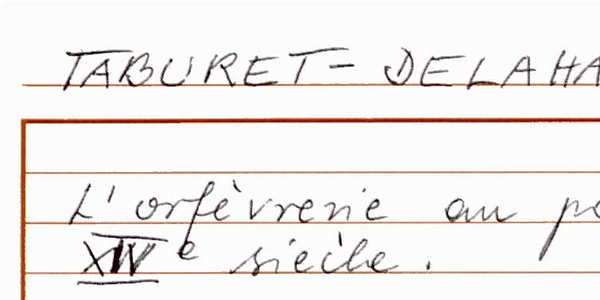 TABURET-DELAHA
L'orfèvrerie au po
XIVe siècle.